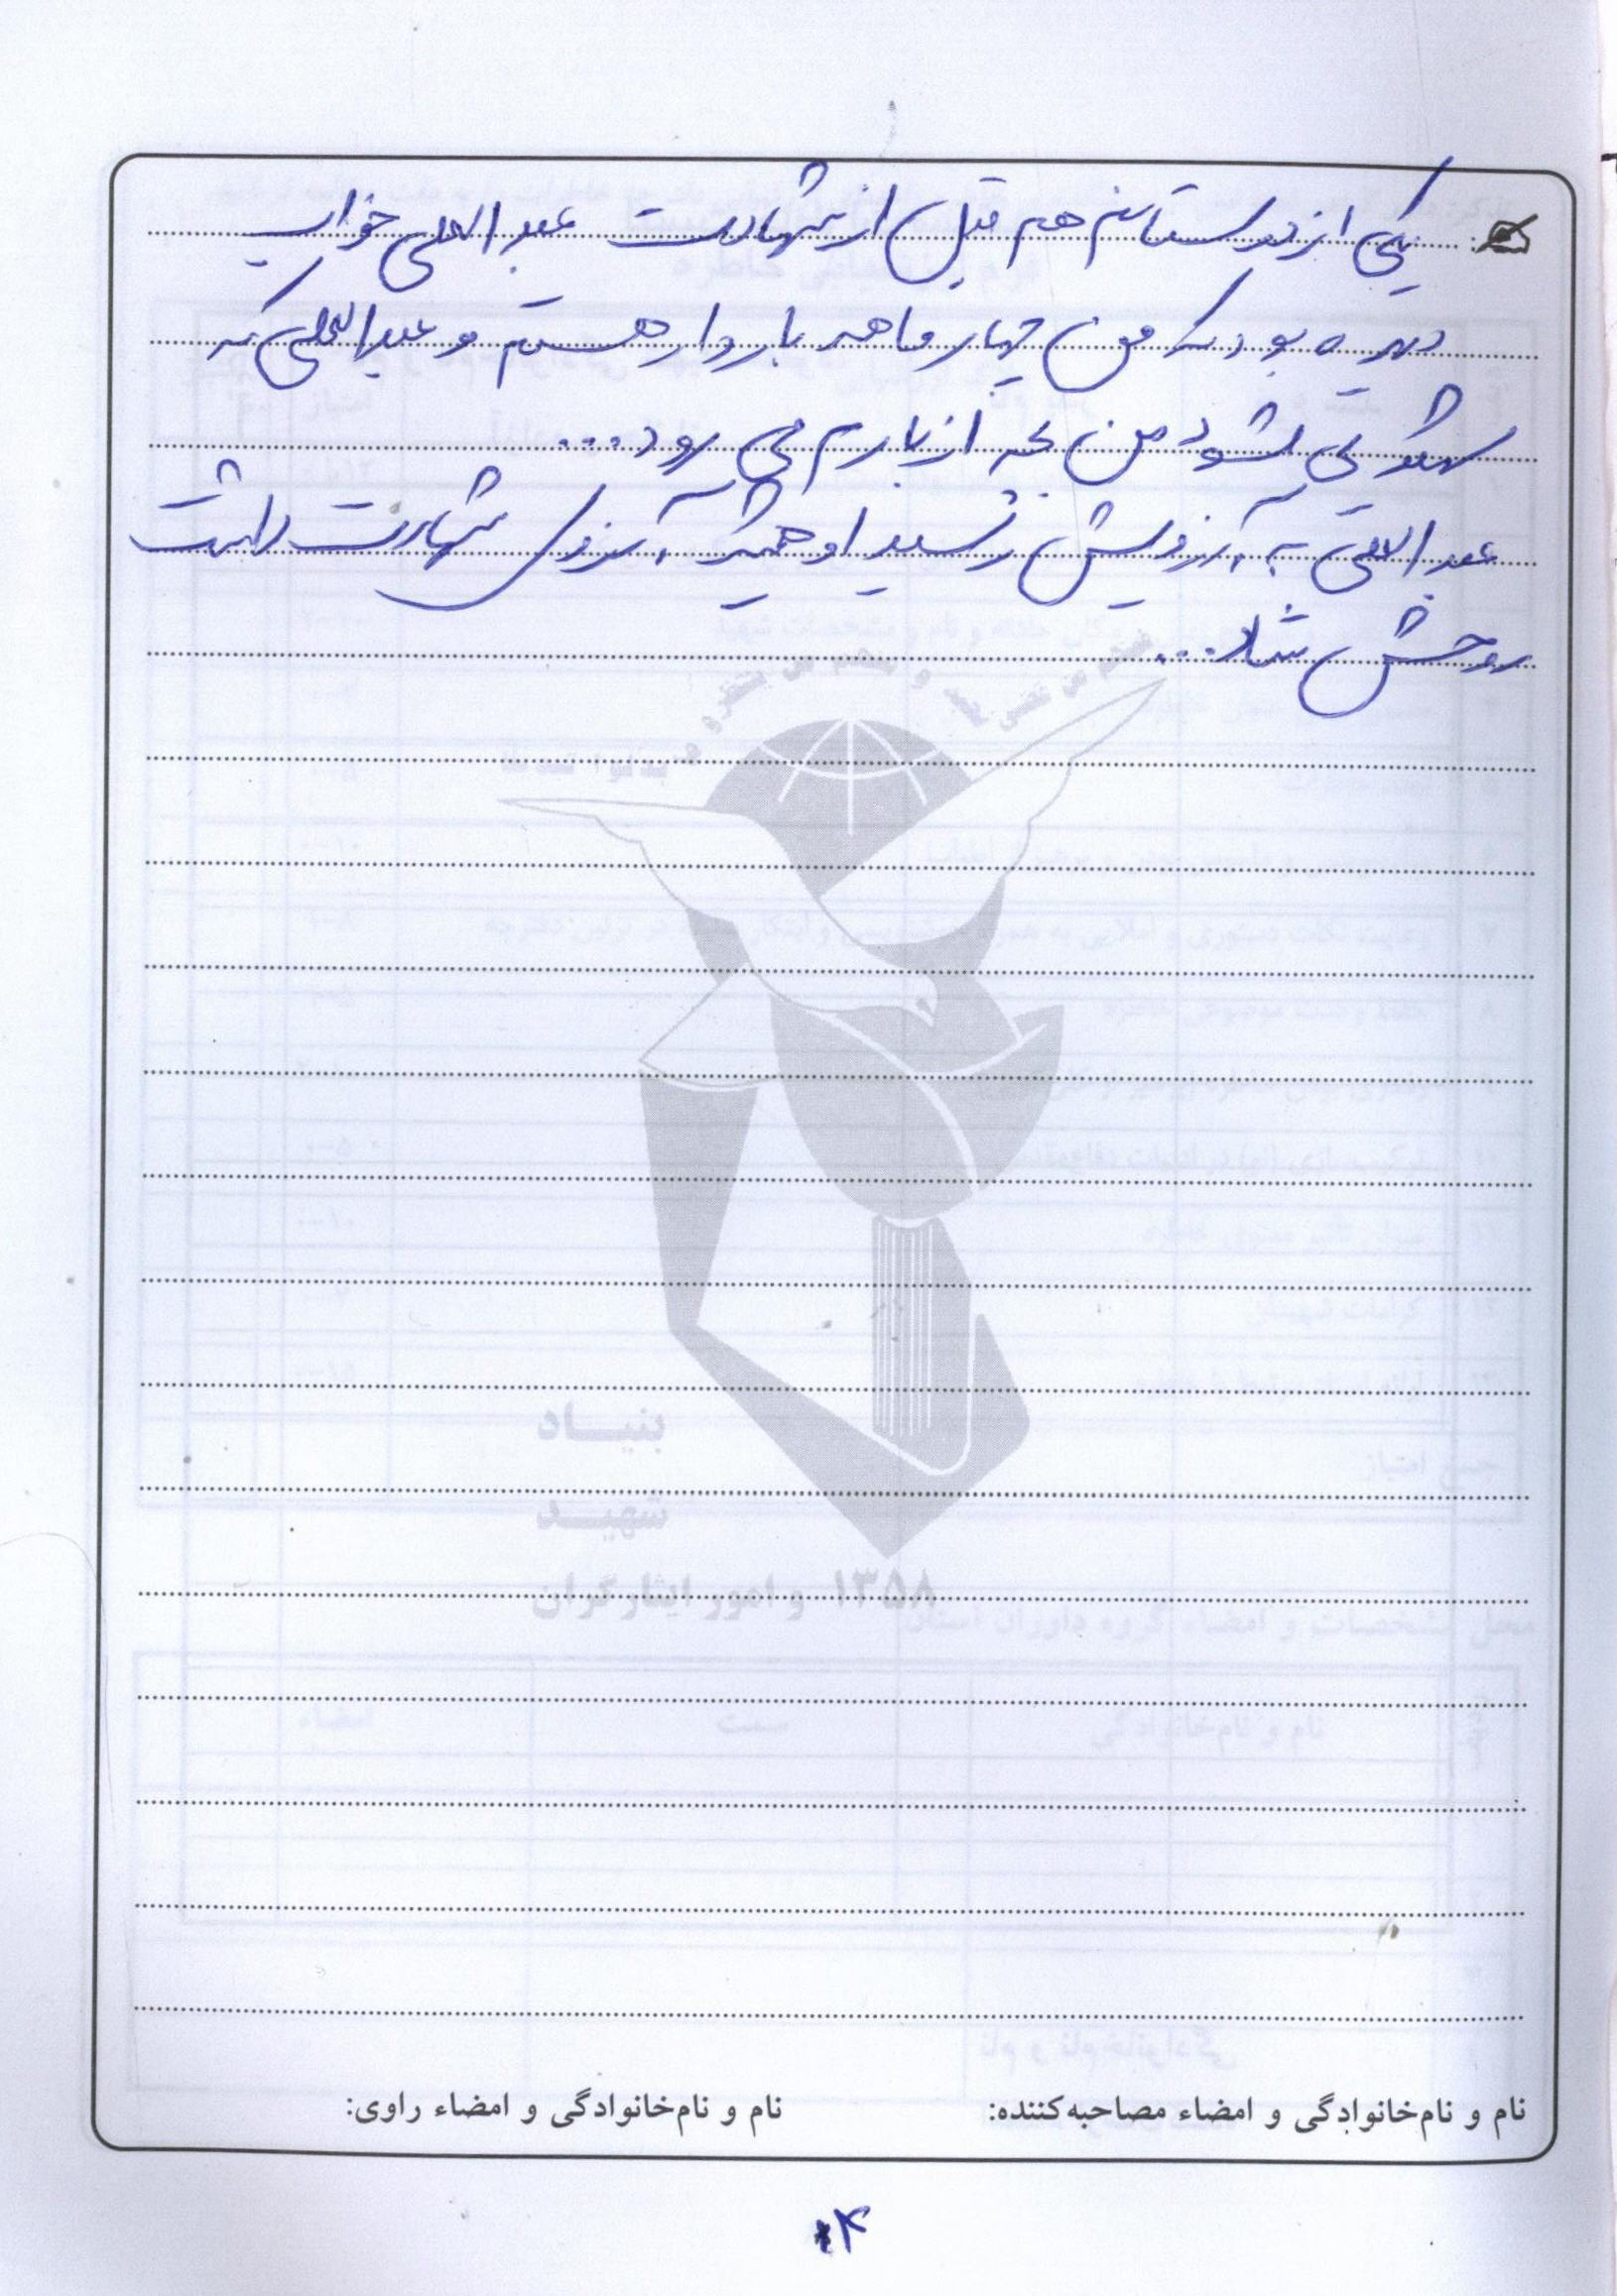 یکی از دوستانم هم قبل از شهادت عبدالعلی خواب
دیده بود که من چهار ماهه باردار هستم و عبدالعلی که
شهید می شود من بچه از یارم می رود...
عبدالعلی به آرزویش رسید او همیشه آرزوی شهادت داشت
روحش شاد...
بنیاد
شهید
۱۳۵۸ و امور ایثارگران
نام و نام‌خانوادگی و امضاء مصاحبه‌کننده: نام و نام‌خانوادگی و امضاء راوی:
۴